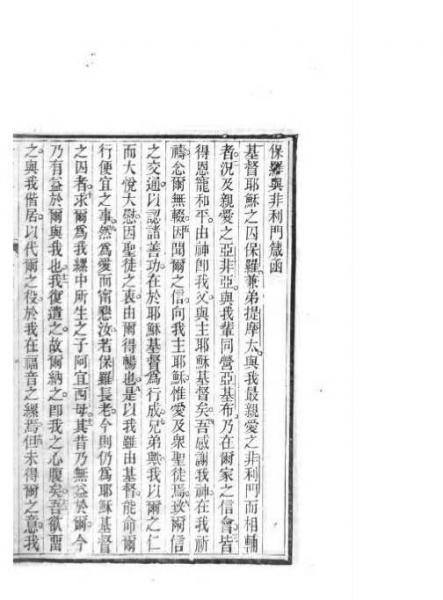 保羅與非利門箴函
基督耶穌之囚保羅兼弟提摩太與我最親愛之非利門而相輔
者況及親愛之亞非亞與我輩同營亞基布乃在爾家之信會皆
得恩寵和平由神卽我父與主耶穌基督矣吾感謝我神在我祈
禱念爾無輟因聞爾之信向我主耶穌惟愛及衆聖徒焉致爾信
之交通以認諸善功在於耶穌基督爲行成兄弟歟我以爾之仁
而大悅大慰因聖徒之衷由爾得暢也是以我雖由基督能命爾
行便宜之事然爲愛而甯懇汝若保羅長老今則仍爲耶穌基督
之囚者求爾爲我縲中所生之子阿宜西母其昔乃無益於爾今
乃有益於爾與我也我復遣之故爾納之卽我之心腹矣吾欲畱
之與我偕居以代爾之役於我在福音之縲焉但未得爾之意我